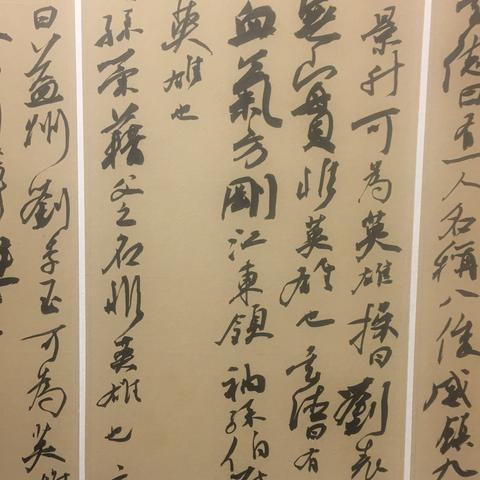 德曰有一人名稱八俊威鎮九
景升可為英雄操曰劉表
無實非英雄也玄德曰有
血氣方剛江東領袖孫伯
英雄也
孫策藉父之名非英雄也
曰益州劉季玉可為英雄